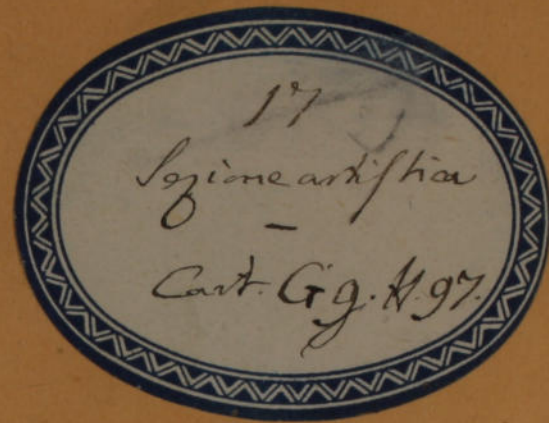 17
Sezione artistica
-
Cart. Gg. N. 97.